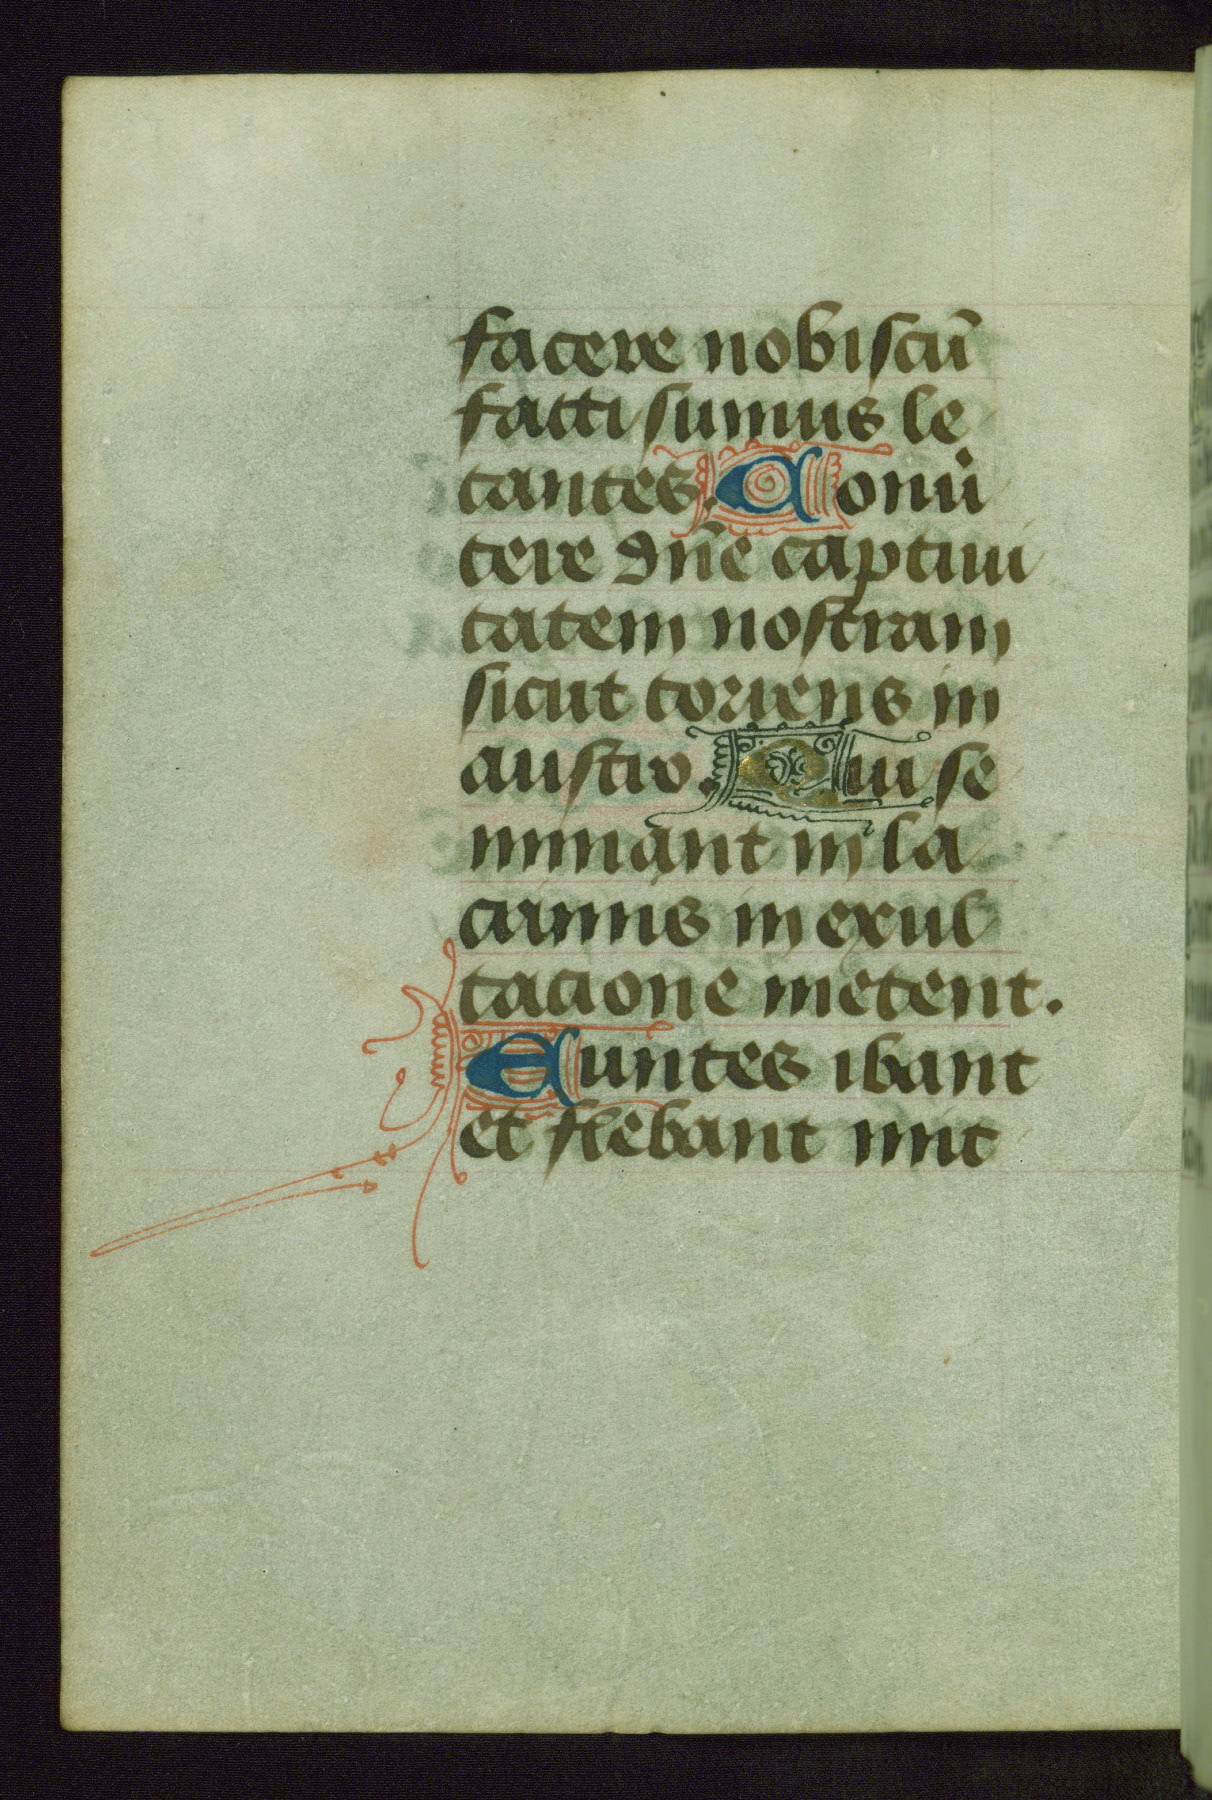 facere nobiscū
facti sumus le
tantes. Conu͛
tere dn̄e captiui
tatem nostram
sicut torrens in
austro. Qui se
minant in la
crimis in exul
tacione metent.
Euntes ibant
et flebant mit